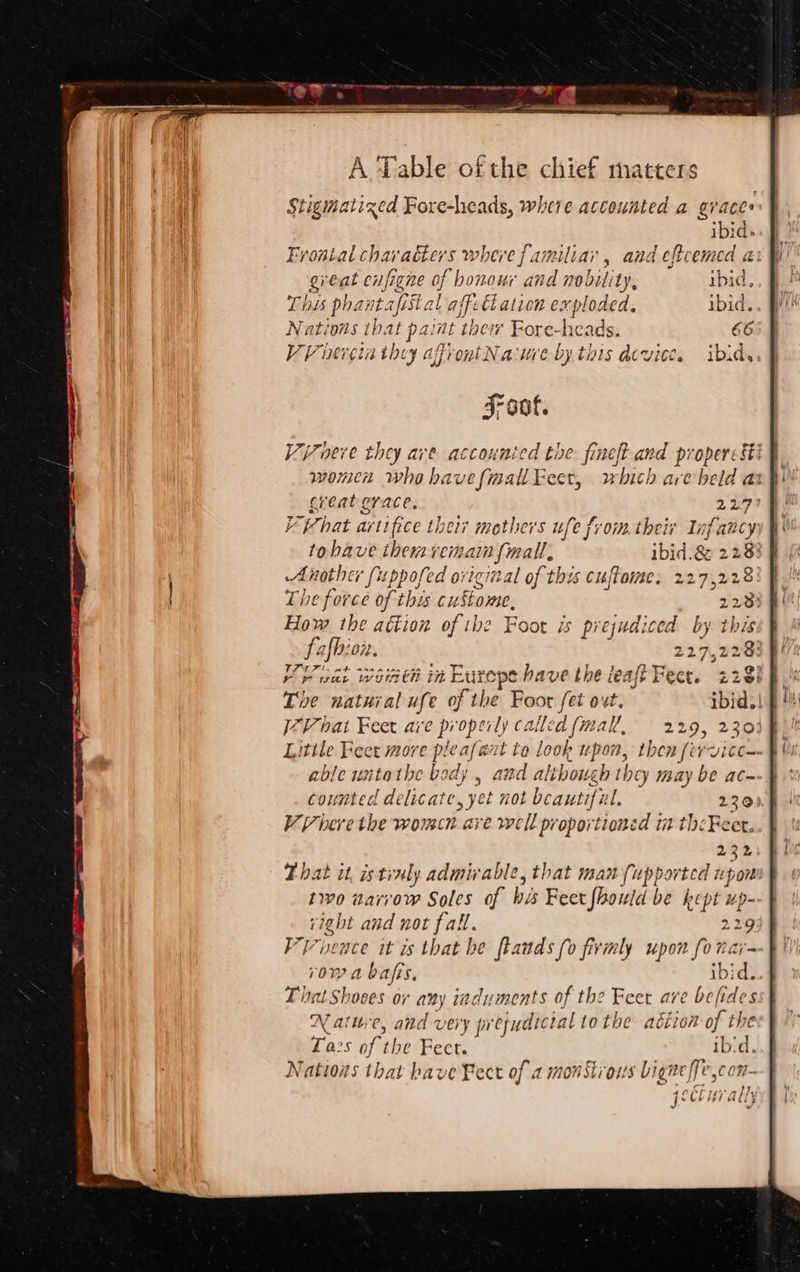 A Table of the chief matters
Stigmatized Fore-heads, where accounted a grace
ibid.
Frontal characters where familiar, and esteemed as
great ensigne of honour and nobility, ibid.
This phantasisticall affectation exploded. ibid.
Nations that paint their Fore-heads. 66
VVherein they affront Nature by this device. ibid.
Foot.
VVhere they are accounted the finest and properest
women who have small Feet, which are held as
great grace. 227
VVhat artifice their mothers use from their Infancy
to have them remain small, ibid. & 228
Another supposed original of this custome. 227,228
The force of this custome, 228
How the action of the Foot is prejudiced by this
fashion. 227,228
VVhat women in Europe have the least Feet. 228
The natural use of the Foot set out. ibid.
VVhat Feet are properly called small, 229, 230
Little Feet more pleasant to look upon, then servicc-
able unto the body, and although they may be ac-
counted delicate, yet not beautiful. 230
VVhere the women are well proportioned in the Feet.
232
That it is truly admirable, that man supported upon
two narrow Soles of his Feet should be kept up-
right and not fall. 229
VVhence it is that he stands so firmly upon so nar-
row a basis. ibid.
That Shooes or any induments of the Feet are besides
Nature, and very prejudicial to the action of the
Toes of the Feet. ibid.
Nations that have Feet of a monstrous bignesse, con-
jecturally